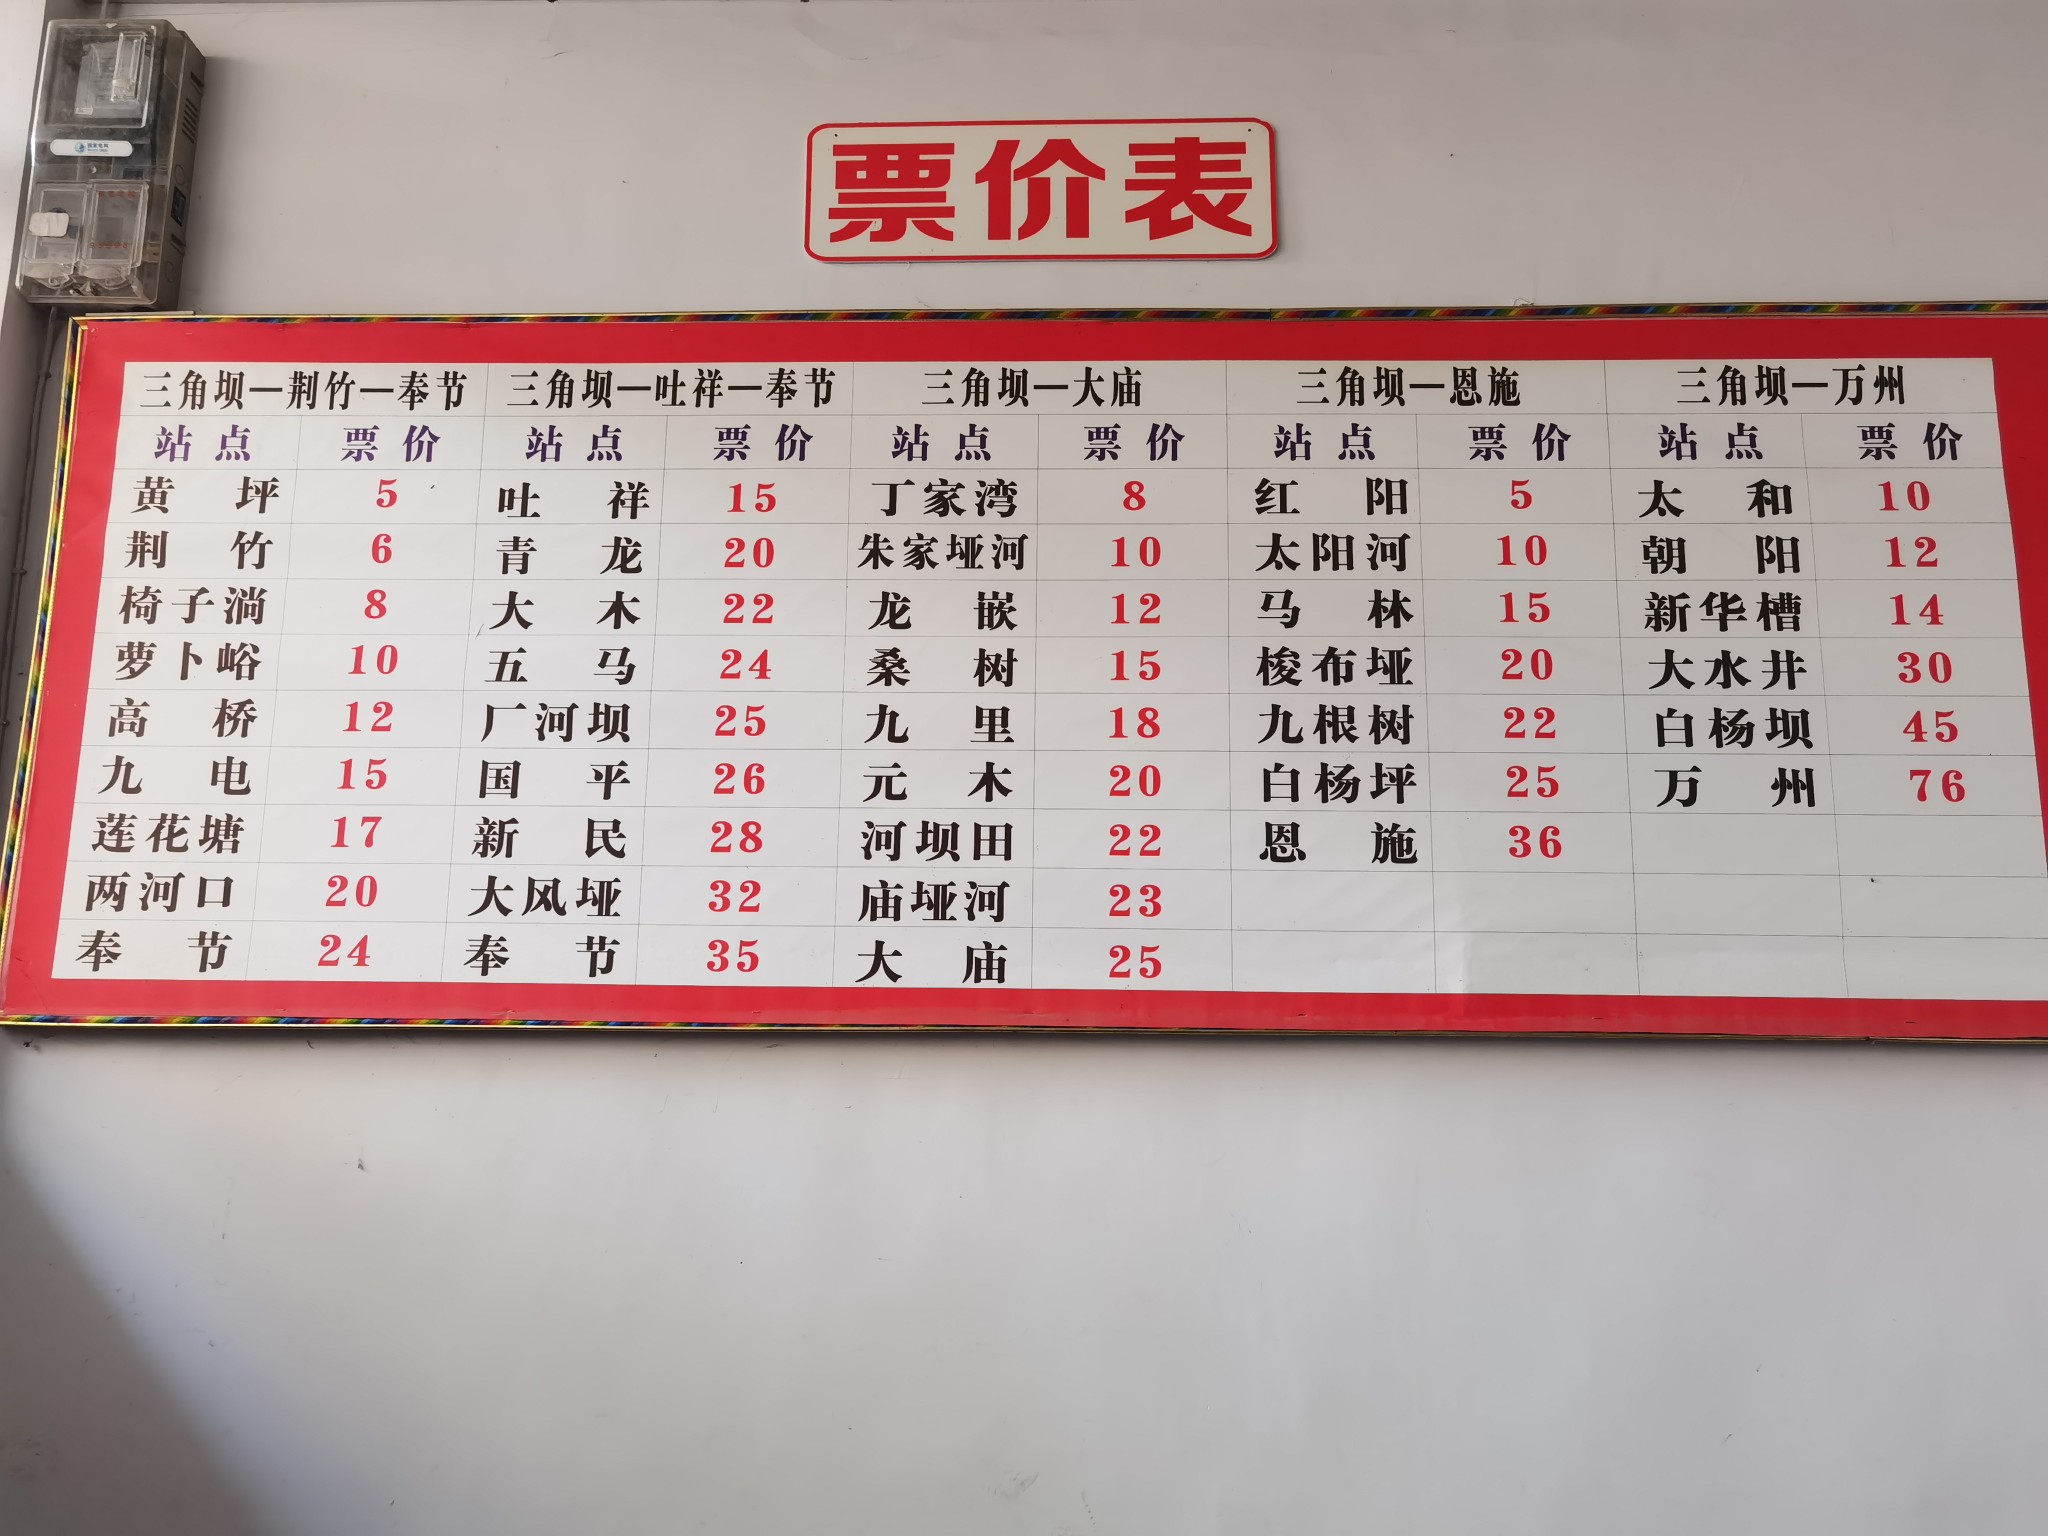 国家电网
票价表
三角坝—荆竹—奉节 三角坝—吐祥—奉节 三角坝—大庙 三角坝—恩施 三角坝—万州
站点 票价 站点 票价 站点 票价 站点 票价 站点 票价
黄坪 5 吐祥 15 丁家湾 8 红阳 5 太和 10
荆竹 6 青龙 20 朱家垭河 10 太阳河 10 朝阳 12
椅子淌 8 大木 22 龙嵌 12 马林 15 新华槽 14
萝卜峪 10 五马 24 桑树 15 梭布垭 20 大水井 30
高桥 12 厂河坝 25 九里 18 九根树 22 白杨坝 45
九电 15 国平 26 元木 20 白杨坪 25 万州 76
莲花塘 17 新民 28 河坝田 22 恩施 36
两河口 20 大风垭 32 庙垭河 23
奉节 24 奉节 35 大庙 25